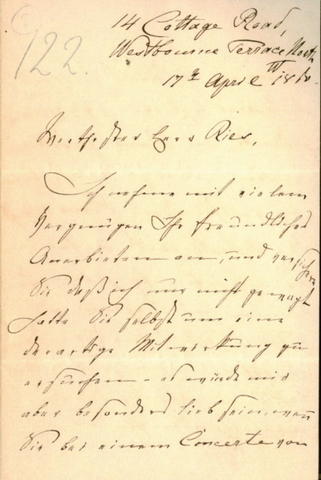 122.
14 Cottage Road,
Westbourne Terrace North
17th April 18
Werthester Herr Ries,
Ich nehme mit vielem
Vergnügen Ihr freundliches
Anerbieten an, und versichere
Sie daß ich nur nicht gewagt
hatte Sie selbst um eine
derartige Mitwirkung zu
ersuchen – es würde mir
aber besonders lieb sein wenn
Sie bei einem Concerte von